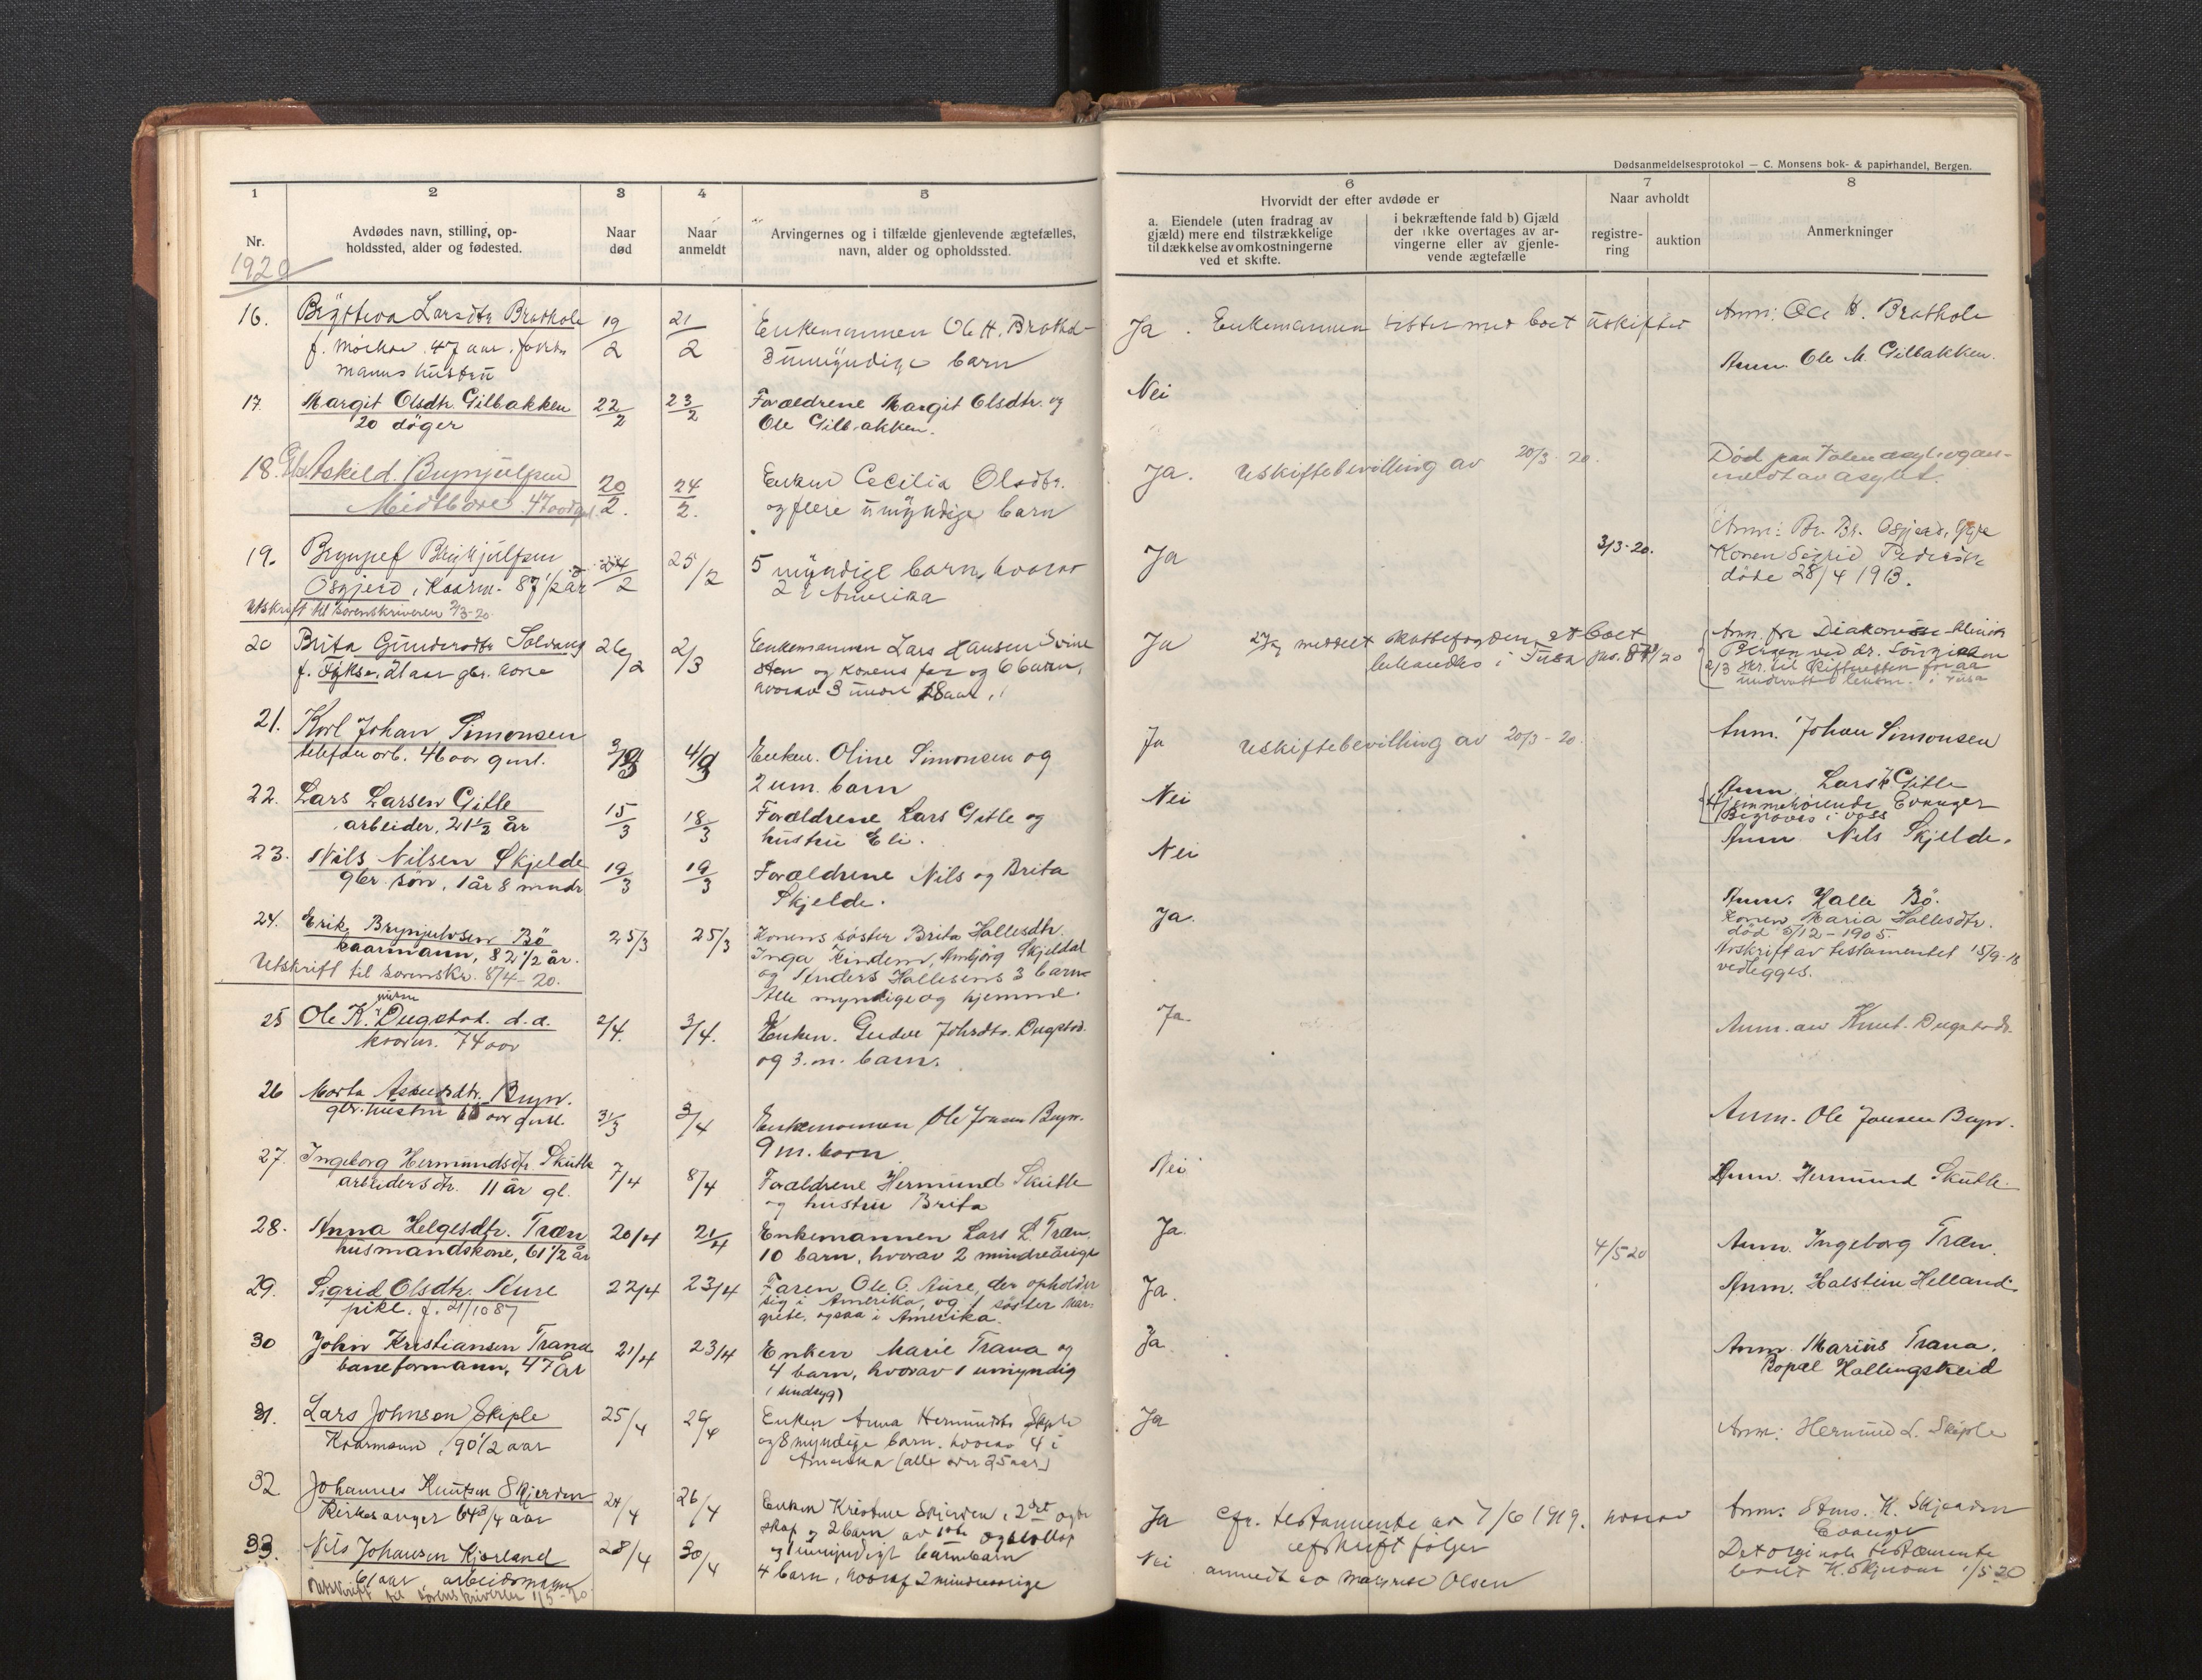 Dødsanmeldelsesprotokol — C. Monsens bok- & papirhandel, Bergen.
1
2
3
4
5
6
7
8
Nr.
Avdødes navn, stilling, op-
holdssted, alder og fødested.
Naar
død
Naar
anmeldt
Arvingernes og i tilfælde gjenlevende ægtefælles,
navn, alder og opholdssted.
Hvorvidt der efter avdøde er
a. Eiendele (uten fradrag av
gjæld) mere end tilstrækkelige
til dækkelse av omkostningerne
ved et skifte.
i bekræftende fald b) Gjæld
der ikke overtages av ar-
vingerne eller av gjenle-
vende ægtefælle
Naar avholdt
registre-
ring
auktion
Anmerkninger
1920
16. Larsdtr Brathole 19/2 21/2 Enkemannen Ole H. Brathol Ja. Enkemannen sitter med boet uskiftet Anm: Ole H. Brathole
47 aar
manns hustru
3 umyndige barn
17. Margit Olsdtr. Gilbakken 22/2 23/2 Forældrene Margit Olsdtr. og Nei Anm. Ole M. Gilbakken.
20 døger
Ole Gilbakken.
18. Askild Brynjulfsen 20/2. 24/2. Enken Cecilia Olsdtr. Ja. Uskiftebevilling av 20/3-20. Død paa Valen asyl og an-
47 aar
og flere umyndige barn
meldt av asylet.
19. Brynjulfsen 24/2 25/2 5 myndige barn, hvorav Ja 3/3-20. Anm: Br. Br. Osgjerd,
Osgjerd, Kaarm. 87 1/2 år
2 i Amerika
Konen Sigrid
døde 28/4 1913.
Utskrift til sorenskriveren 3/3-20
20 Brita Gundersdtr 26/2 2/3 Enkemannen Lars Hansen Ja meddelt skattefogden, at boet Anm. fra Diakonisse klinik
gbr. kone
og konens far og 6 barn,
behandles i Fusa
Bergen ved dr.
hvorav 3 under 18 aar,
21. Karl Johan Simonsen 4/3 Enken. Oline Simonsen og Ja Uskiftebevilling av 20/3-20. Anm. Johan Simonsen
telefon arb. 46 aar gml.
2 um. barn
22. Lars Larsen Gitle 15/3 18/3 Forældrene Lars Gitle og Nei Anm. Lars Gitle
arbeider, 21 1/2 år
hustru Eli.
Hjemmehørende Evanger
Begraves i Voss
23. Nils Nilsen Skjelde 19/3 19/3 Forældrene Nils og Brita Nei Anm. Nils Skjelde.
gbr. søn, 1 år 8 mndr
Skjelde.
24. Erik Brynjulvsen Bö 25/3 25/3 Konens søster Brita Hallesdtr. Ja. Anm. Halle Bö.
kaarmann, 82 1/2 år.
Inga Kindem, Anbjørg Skjeldal
og Anders Hallesens 3 barn
Alle myndige og hjemme.
Konen Maria Hallesdtr.
død 5/12-1905.
Avskrift av testamentet 15/9-18
vedlegges.
Utskrift til sorenskr. 8/4-20.
25 Ole K. Dugstad. d.æ. 2/4. 3/4. Enken. Johsdtr. Dugstad. Ja Anm. av Knut Dugstad.
kaarm. 74 aar
og 3. m. barn.
26 Marta Bryn. 31/3 3/4 Enkemannen Ole Jonsen Bryn. Anm. Ole Jonsen Bryn.
gbr. hustru aar gml.
9 m. barn
27. Ingeborg Hermundsdtr. Skutle 7/4 8/4 Forældrene Hermund Skutle Nei Anm. Hermund Skutle.
arbeidersdtr. 11 år gl.
og hustru Brita
28. Anna Helgesdtr. Træn 20/4 21/4 Enkemannen Lars L. Træn. Ja. 4/5 20 Anm. Ingeborg Træn.
husmandskone, 61 1/2 år
10 barn, hvorav 2 mindreårige
29. Sigrid Olsdtr. Aure 22/4 23/4 Faren Ole O. Aure, der opholder Ja. Anm. Halstein Helland.
pike. f. 21/10 87
sig i Amerika, og 1 søster Mar-
grete, ogsaa i Amerika.
30 John Kristiansen Trana 21/4 23/4 Enken Marie Trana og Ja Anm. Marius Trana.
baneformann, 47 år
4 barn, hvorav 1 umyndig
(sindsyg)
Bopæl Hallingskeid
31. Lars Johnsen Skiple 25/4 26/4 Enken Anna Hermundsdtr Skiple Ja Anm: Hermund L. Skiple
Kaarmann, 90 1/2 aar
og 8 myndige barn. hvorav 4 i
Amerika (alle over 25 aar)
32. Johannes Knutsen Skjerven 24/4 26/4 Enken Kristine Skjerven, 2det egte Ja Cfr. testamente av 7/6 1919. hvorav Anm: K. Skjerven
Kirkesanger 64 3/4 aar
skap og 2 barn av 1ste egteskap
og 1 umyndigt barnebarn
afskrift følger
Evanger
Det originale testamente
33. Nils Johansen Kjorland 28/4 30/4 4 barn, hvoraf 2 mindreaarige Nei anmeldt av Olsen
61 aar, arbeidsmann
Utskrift til sorenskriveren 1/5-20